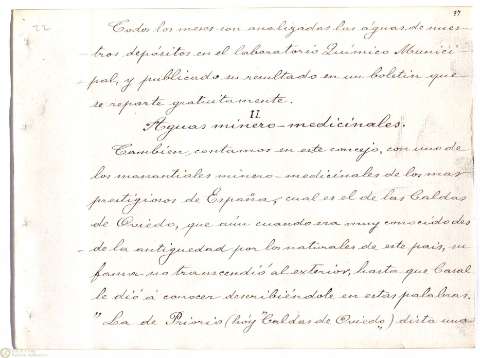 37
Todos los meses son analizadas las águas de nues-
tros depósitos en el laboratorio Químico Munici-
pal, y publicado su resultado en un boletin que
se reparte gratuitamente.
II.
Aguas minero-medicinales.
Tambien, contamos en este concejo, con uno de
los manantiales minero-medicinales de los mas
prestigiosos de España, cual es el de las Caldas
de Oviedo, que aún cuando era muy conocido des
de la antiguedad por los naturales de este pais, su
fama no transcendió al exterior, hasta que Casal
le dió á conocer describiéndole en estas palabras.
"La de Priorio (hoy "Caldas de Oviedo") dista una